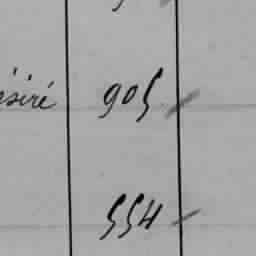 ésiré 905
554